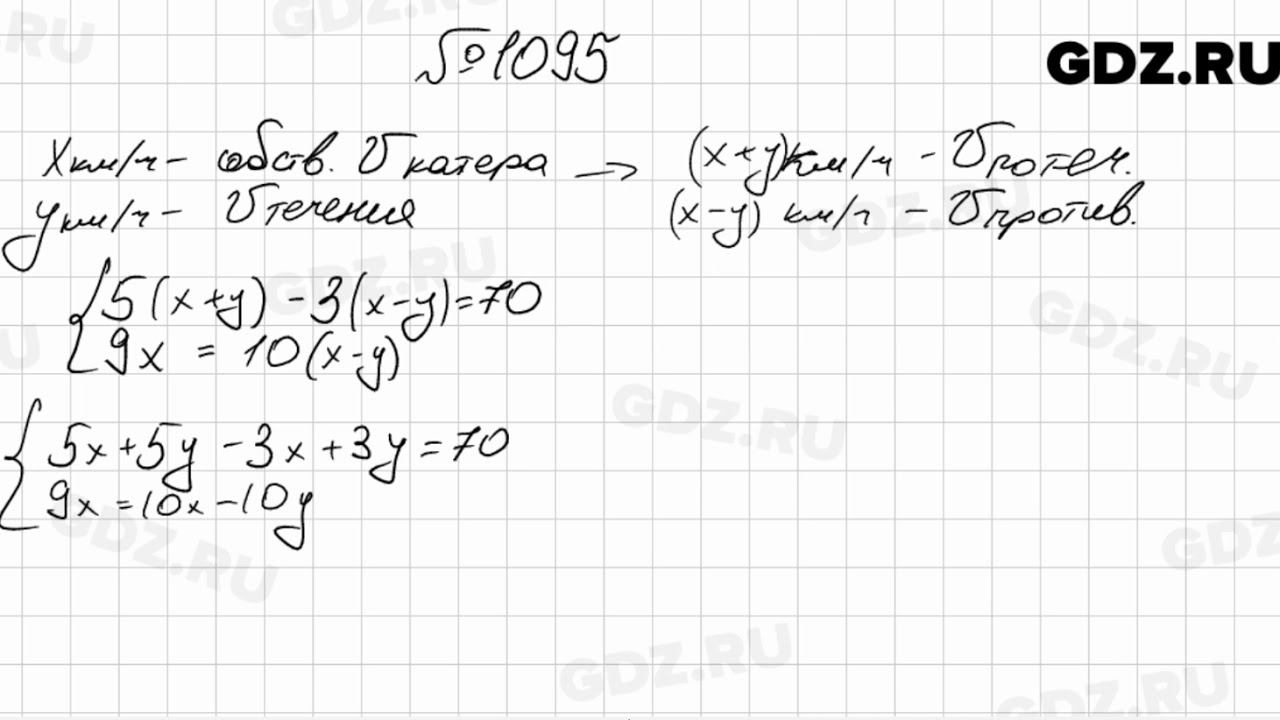 №1095
GDZ.RU
x км/ч – собств. V катера → (x+y) км/ч – V по теч.
y км/ч – V течения (x–y) км/ч – V против.
{ 5(x+y) – 3(x–y) = 70
9x = 10(x–y)
{ 5x + 5y – 3x + 3y = 70
9x = 10x – 10y